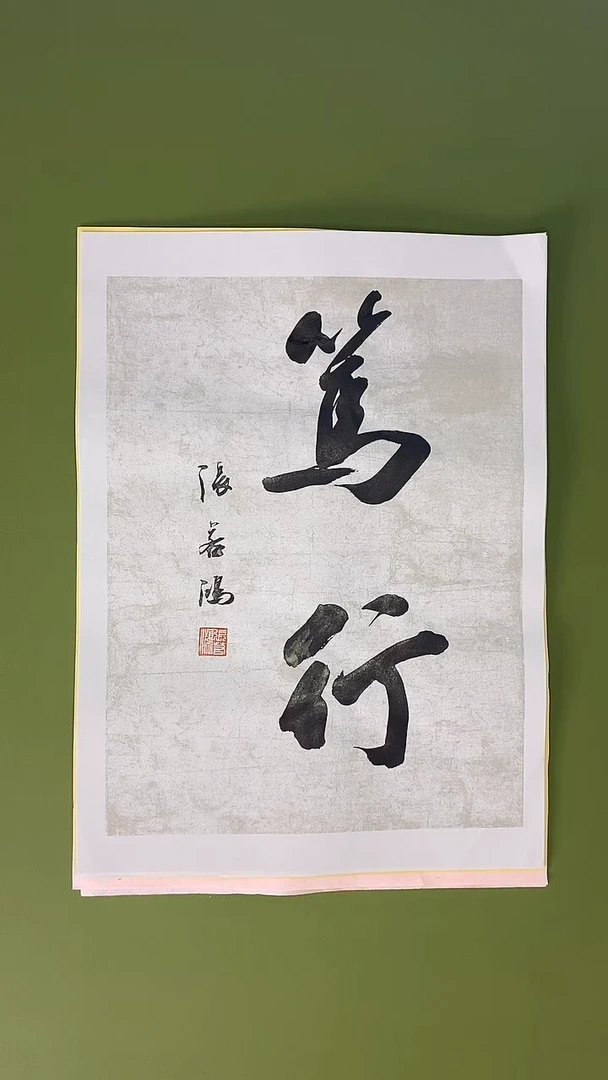 篤行
張若鴻